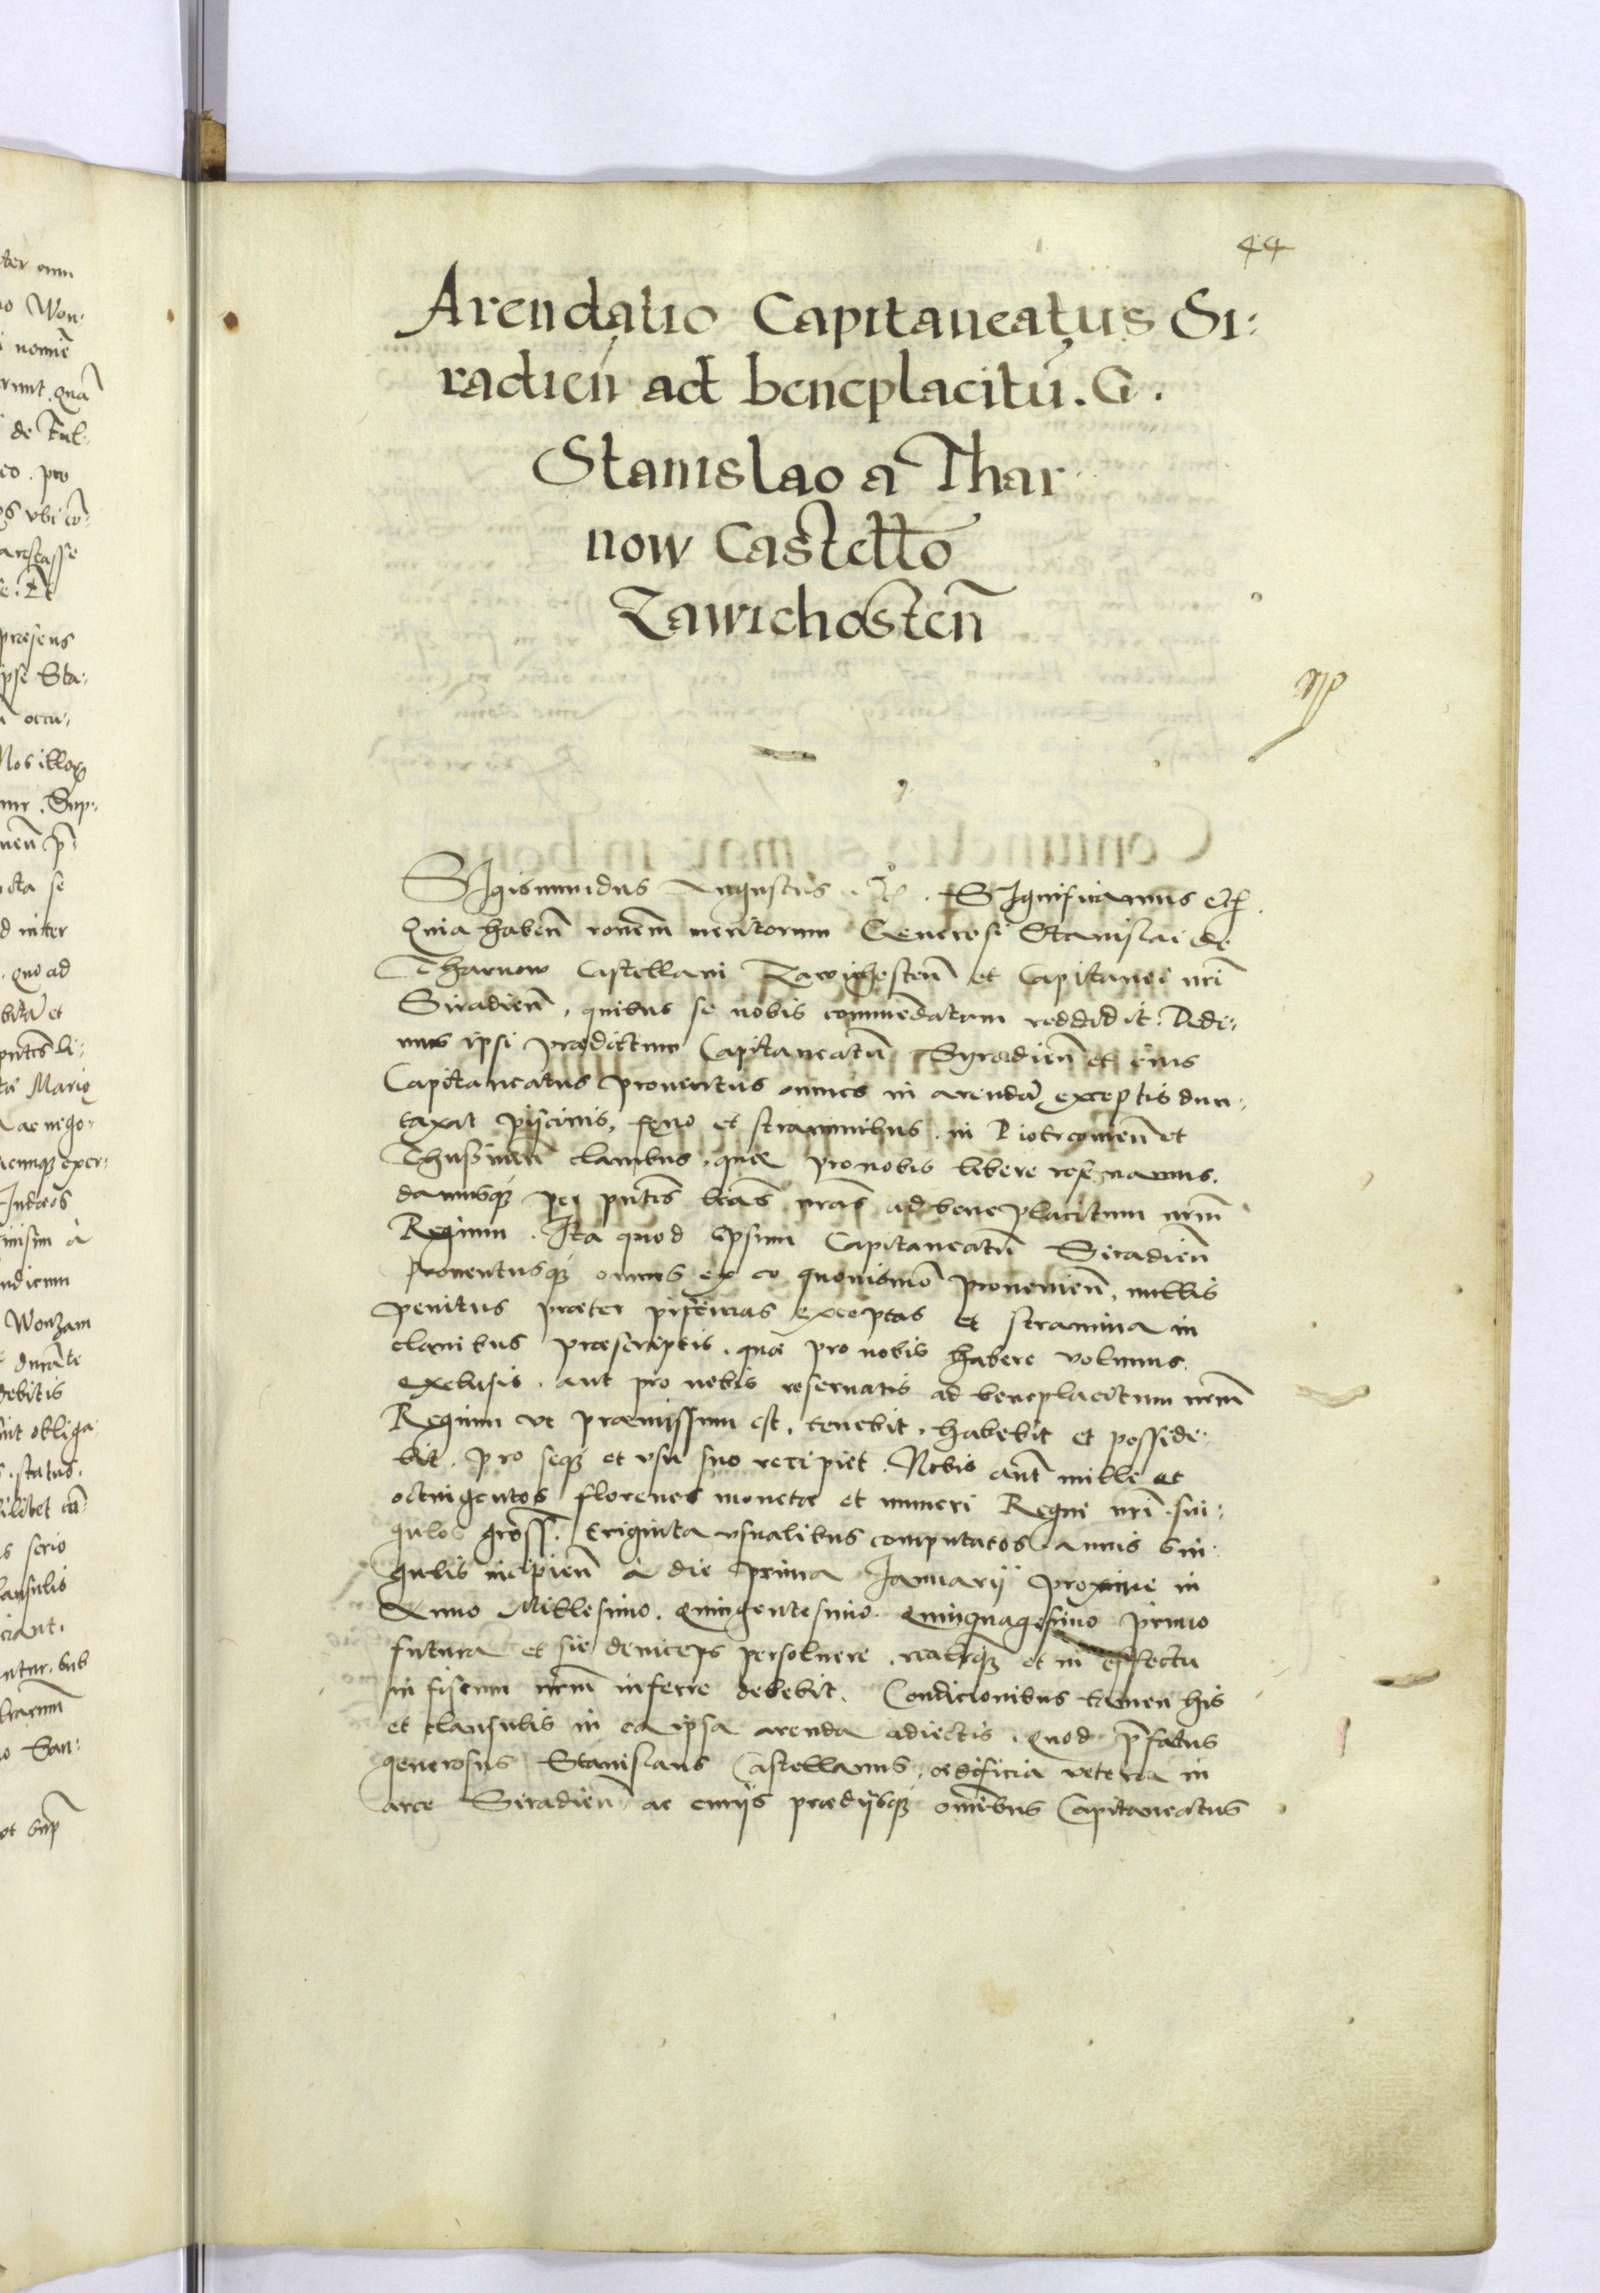 44
Arendatio Capitaneatus Si:
radien̄ ad beneplacitū. G.
Stanislao a Thar
now Castello
Zawichosten̄
SIgismundus Augustus . SIgnificamus etc.
Quia haben̄ ronem meritorum Generosi Stanislai de
Tharnow Castellani Zawichosten̄ et Capitanei nr̄i
Siradien̄, quibus se nobis commendatum reddidit. Dedi:
mus ipsi prædictum Capitaneatū Syradien̄ et eius
Capitaneatus proventus omnes in arendā exceptis dun:
taxat piscinis, feno et straminibus in Piotrcovien̄ et
Thussinen̄ clavibus, quæ pro nobis libere reservamus.
damusqȝ per pn̄tes l̄ras nr̄as ad beneplacitum nr̄m
Regium. Ita quod ipsum Capitaneatū Siradien̄
proventusqȝ omnes ex eo quovismo provenien̄, nullis
penitus præter piscinas exceptas et stramina in
clavibus præscriptis, quæ pro nobis habere volumus,
exclusis, aut pro nobis reservatis ad beneplacitum nr̄m
Regium ut præmissum est, tenebit, habebit et posside:
bit, pro seqȝ et usu suo recipiet. Nobis aūt mille et
octingentos florenos monetæ et numeri Regni nr̄i sin:
gulos gross. triginta usualibus computatos annis sin:
gulis incipien̄ a die prima Januarij proxime in
Anno Millesimo, Quingentesimo Quinquagesimo primo
futura et sic deinceps persolvere, realrqȝ et in effectu
in fiscum nr̄m inferre debebit. Condicionibus tamen his
et clausulis in ea ipsa arenda adiectis. Quod p̄fatus
generosus Stanislaus Castellanus, ædificia vetera in
arce Siradien̄ ac curijs prædijsqȝ om̄ibus Capitaneatus